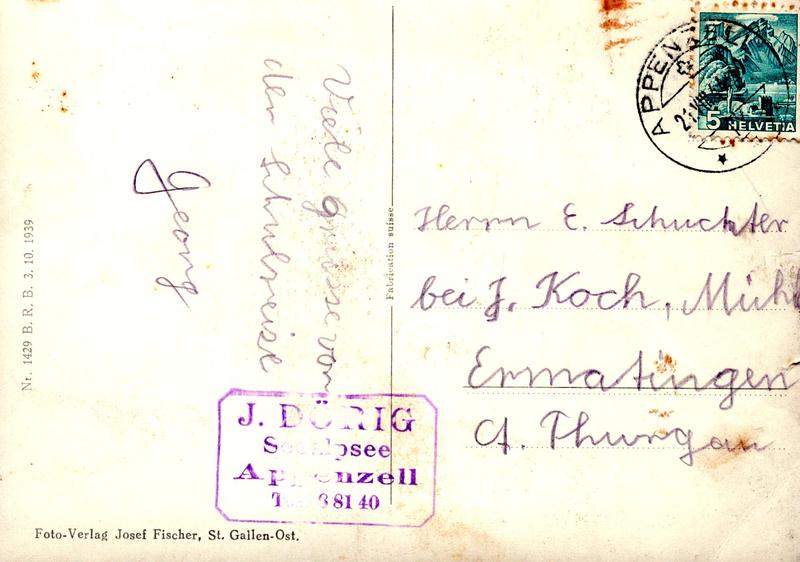 Viele Grüsse von
der Schulreise
Georg
Nr. 1429 B. R. B. 3. 10. 1939
Fabrication suisse
APPENZELL
5 HELVETIA
Herrn E. Schuchter
bei J. Koch, Mühl
Ermatingen
Ct. Thurgau
J. DÖRIG
Seealpsee
Appenzell
8 81 40
Foto-Verlag Josef Fischer, St. Gallen-Ost.